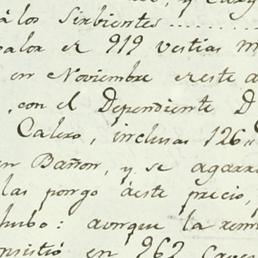 álos Sirbientes
valor de 919 vestias m
en Noviembre de este a
, con el Dependiente D
Calero, inclusas 126
en Bañon, y se agarra
las pongo áeste precio,
hubo: aunque la rem
nsistió en 262 Cavez